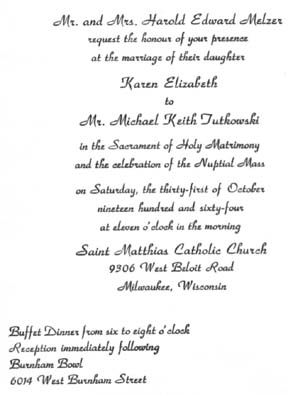 Mr. and Mrs. Harold Edward Melzer
request the honour of your presence
at the marriage of their daughter
Karen Elizabeth
to
Mr. Michael Keith Tutkowski
in the Sacrament of Holy Matrimony
and the celebration of the Nuptial Mass
on Saturday, the thirty-first of October
nineteen hundred and sixty-four
at eleven o'clock in the morning
Saint Matthias Catholic Church
9306 West Beloit Road
Milwaukee, Wisconsin
Buffet Dinner from six to eight o'clock
Reception immediately following
Burnham Bowl
6014 West Burnham Street